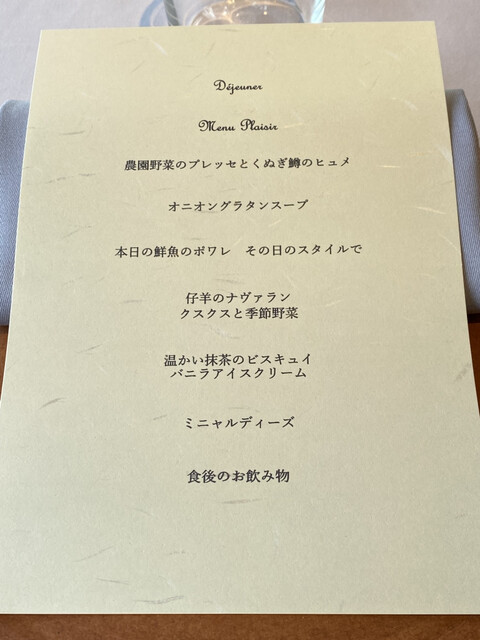 Déjeuner
Menu Plaisir
農園野菜のプレッセとくぬぎ鱒のヒュメ
オニオングラタンスープ
本日の鮮魚のポワレ　その日のスタイルで
仔羊のナヴァラン
クスクスと季節野菜
温かい抹茶のビスキュイ
バニラアイスクリーム
ミニャルディーズ
食後のお飲み物